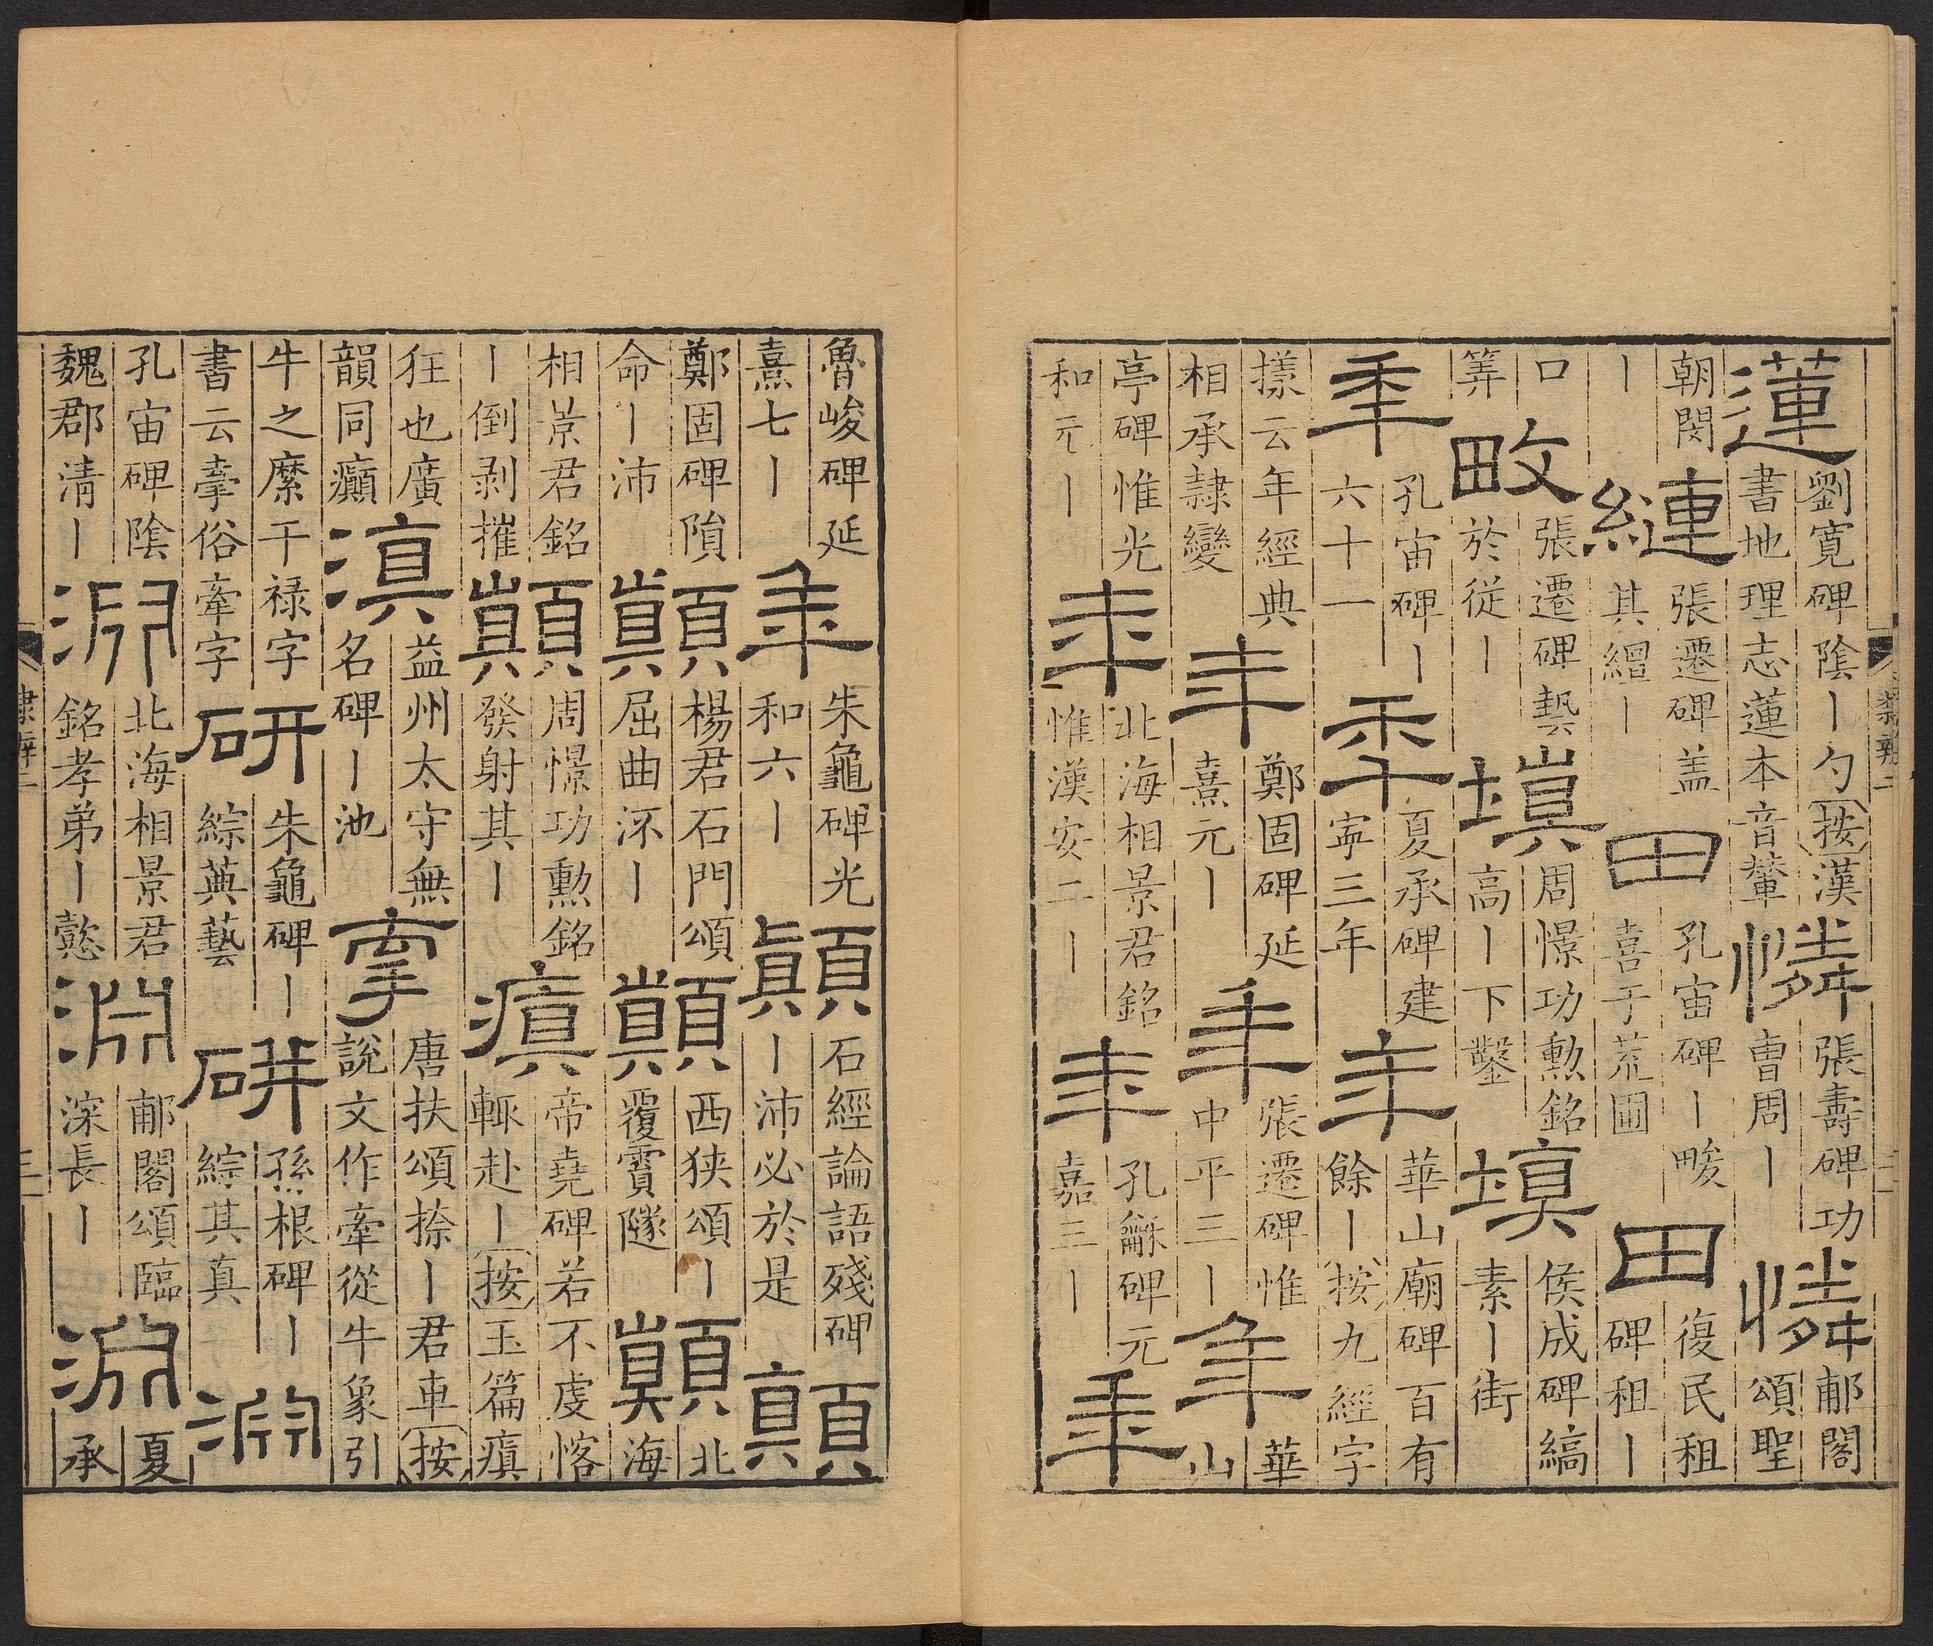 蓮
劉寬碑陰丨勺按漢
書地理志蓮本音輦
憐
張壽碑功
曹周丨
憐
郙閣
頌聖
朝閔
丨
縺
張遷碑盖
其繒丨
田
孔宙碑丨畯
喜于荒圃
田
復民租
碑租丨
口
筭
畋
張遷碑蓺
於從丨
塡
周憬功勲銘
高丨下鑿
填
侯成碑縞
素丨街
秊
孔宙碑丨
六十一
秊
夏承碑建
寧三年
年
華山廟碑百有
餘丨按九經字
㨾云年經典
相承隷變
年
鄭固碑延
熹元丨
年
張遷碑惟
中平三丨
年
華
山
亭碑惟光
和元丨
年
北海相景君銘
惟漢安二丨
年
孔龢碑元
嘉三丨
年
魯峻碑延
熹七丨
年
朱龜碑光
和六丨
顛
石經論語殘碑
丨沛必於是
顛
鄭固碑隕
命丨沛
顛
楊君石門頌
屈曲丨
顛
西狹頌丨
覆霣隧
顛
北
海
相景君銘
丨倒剥摧
顛
周憬功勲銘
發射其丨
瘨
帝堯碑若不虔愘
輙赴丨按玉篇瘨
狂也廣
韻同癲
滇
益州太守無
名碑丨池
牽
唐扶頌捺丨君車按
說文作牽從牛象引
牛之縻干禄字
書云俗牽字
研
朱龜碑丨
綜典藝
硏
孫根碑丨
綜其真
淵
孔宙碑陰
魏郡清丨
淵
北海相景君
銘孝弟丨懿
淵
郙閣頌臨
深長丨
淵
夏
承